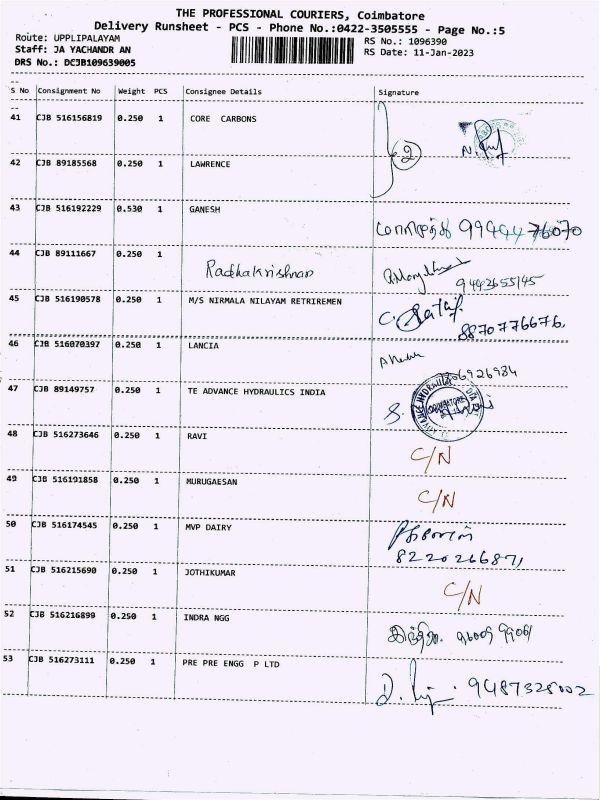 THE PROFESSIONAL COURIERS, Coimbatore
Delivery Runsheet - PCS - Phone No.:0422-3505555 - Page No.:5
Route: UPPLIPALAYAM
RS No.: 1096390
Staff: JA YACHANDR AN
RS Date: 11-Jan-2023
DRS No.: DCJB109639005
S No Consignment No Weight PCS Consignee Details Signature
41 CJB 516156819 0.250 1 CORE CARBONS
2
42 CJB 89185568 0.250 1 LAWRENCE
43 CJB 516192229 0.530 1 GANESH
9944476070
44 CJB 89111667 0.250 1 Radhakrishnan
9442655145
45 CJB 516190578 0.250 1 M/S NIRMALA NILAYAM RETRIREMEN
8870776676.
46 CJB 516070397 0.250 1 LANCIA
47 CJB 89149757 0.250 1 TE ADVANCE HYDRAULICS INDIA
48 CJB 516273646 0.250 1 RAVI C/N
49 CJB 516191858 0.250 1 MURUGAESAN C/N
50 CJB 516174545 0.250 1 MVP DAIRY
8220266871
51 CJB 516215690 0.250 1 JOTHIKUMAR C/N
52 CJB 516216899 0.250 1 INDRA NGG
53 CJB 516273111 0.250 1 PRE PRE ENGG P LTD
9487328002